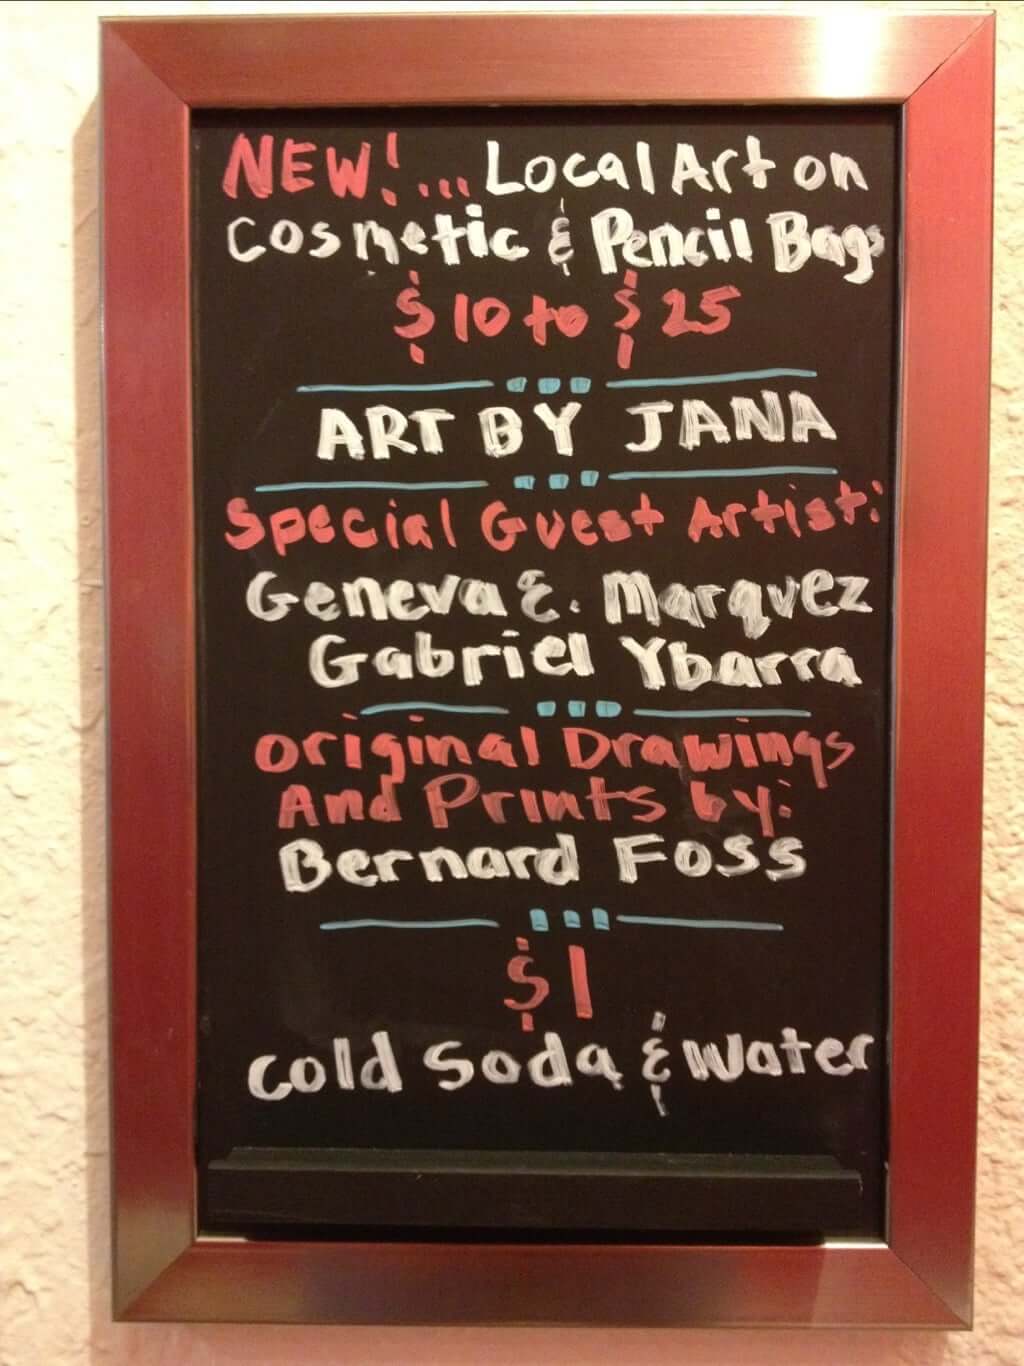 NEW!... Local Art on
Cosmetic & Pencil Bags
$10 to $25
ART BY JANA
Special Guest Artist:
Geneva E. Marquez
Gabriel Ybarra
Original Drawings
And Prints by:
Bernard Foss
$1
Cold Soda & Water